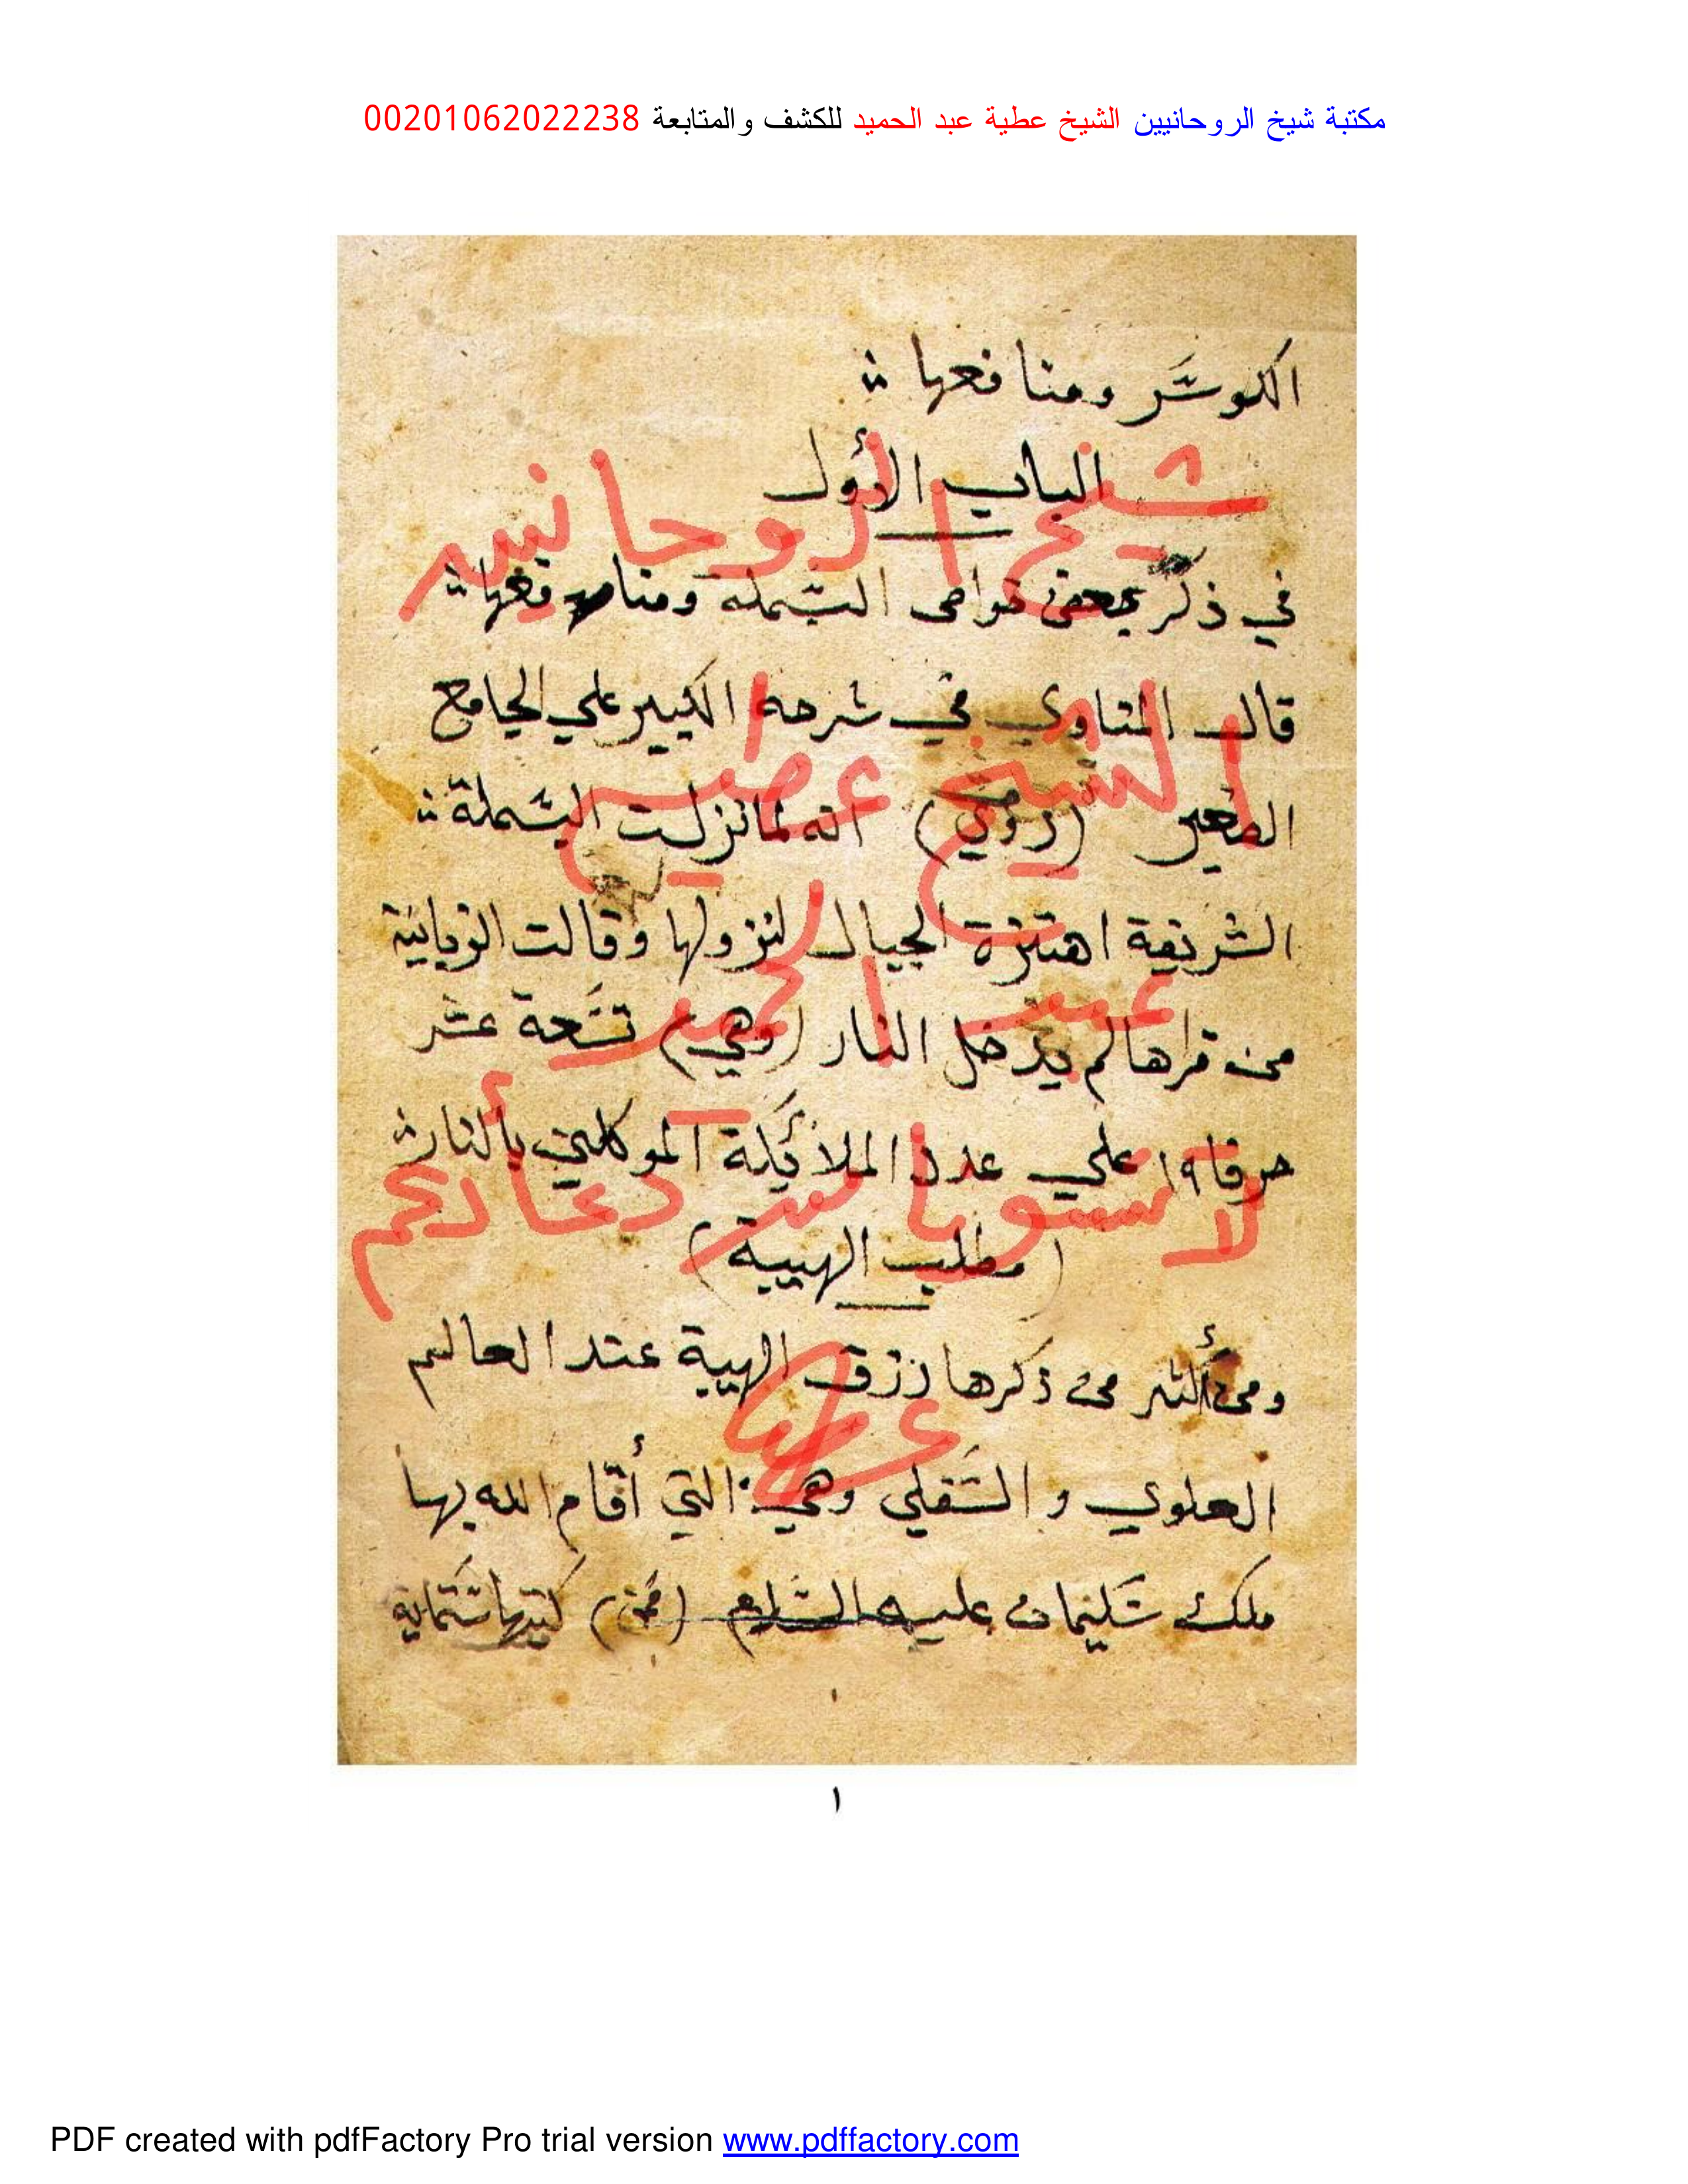 مكتبة شيخ الروحانيين الشيخ عطية عبد الحميد للكشف والمتابعة 00201062022238
الكوسَر ومنافعها
الباب الأول
في ذكر بعض خواص البسملة ومنافعها
قال المناوي في شرحه الكبير على الجامع
الصغير (روي) انه لما نزلت البسملة
الشريفة اهتزة الجبال لنزولها وقالت الزبانية
من قراها لم يدخل النار (وهي) تسعة عشر
حرفا ١٩ علي عدد الملائكة الموكلين بالنار
(مطلب الهيبة)
ومن أكثر من ذكرها رزق الهيبة عند العالم
العلوي والسفلي وهي التي أقام الله بها
ملك سليمان عليه السلام (فمن) كتبها ستماية
١
شيخ الروحانين
الشيخ عطية
عبد الحميد
لا تنسونا من دعائكم
عطية
١
PDF created with pdfFactory Pro trial version www.pdffactory.com